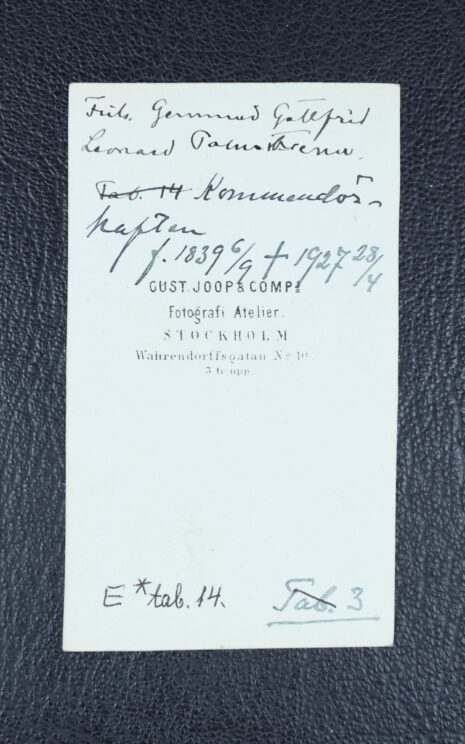 Frih. Gemmund Gottfrid
Leonard Palmstierna.
Tab. 14 Kommendör-
kapten
f. 1839 6/9 † 1927 28/4
GUST. JOOP & COMP:
Fotografi Atelier.
STOCKHOLM
Wahrendorffsgatan No 10.
3 tr. upp.
E * tab. 14.
Tab. 3